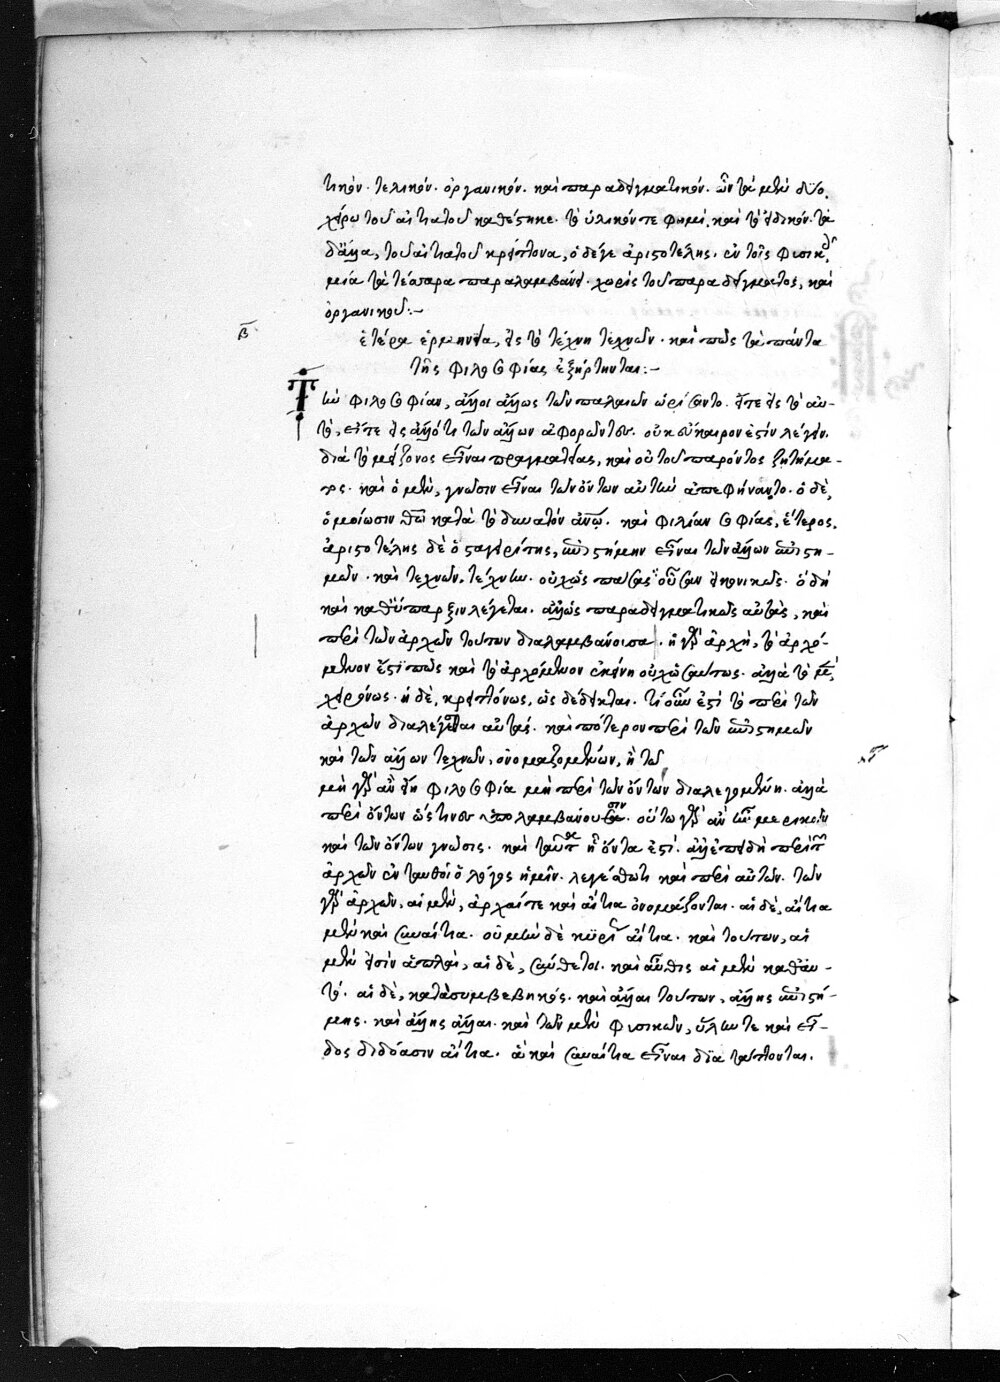 τικόν. τελικόν. ὀργανικόν. καὶ παραδειγματικόν. ὧν τὰ μὲν δύο,
χείρω τοῦ αἰτιατοῦ καθέστηκε. τὸ ὑλικόν τε φημί, καὶ τὸ εἰδικόν. τὰ
δ' ἄλλα, τοῦ αἰτιατοῦ κρείττονα, ὁ δέ γε ἀριστοτέλης, ἐν τοῖς φυσικ
μόνα τὰ τέσσαρα παραλαμβάνει. χωρὶς τοῦ παραδείγματος, καὶ
ὀργανικοῦ:–
β
ἑτέρα ἑρμηνεία, εἰς τὸ τέχνη τεχνῶν. καὶ πῶς τὰ πάντα
τῆς φιλοσοφίας ἐξήρτηνται:–
Τὴν φιλοσοφίαν, ἄλλοι ἄλλως τῶν παλαιῶν ὡρίσαντο. εἴτε εἰς τὸ αὐ-
τό, εἴτε εἰς ἄλλό τι τῶν ἄλλων ἀφορῶντες. οὐκ εὔκαιρον ἐστὶν λέγειν.
διὰ τὸ μείζονος εἶναι πραγματείας, καὶ οὐ τοῦ παρόντος ζητήμα-
τος. καὶ ὁ μὲν, γνῶσιν εἶναι τῶν ὄντων αὐτὴν ἀπεφήναντο. ὁ δὲ,
ὁμοίωσιν θεῶ κατὰ τὸ δυνατὸν ἀνω. καὶ φιλίαν σοφίας, ἕτερος.
ἀριστοτέλης δὲ ὁ σταγειρίτης, ἐπιστήμην εἶναι τῶν ἄλλων ἐπιστη-
μῶν. καὶ τεχνῶν, τέχνην. οὐχ ὡς πάσας οὖσαν εἰκονικῶς. ὁ δὴ
καὶ καθ' ὕπαρξιν λέγεται. ἀλλ' ὡς παραδειγματικῶς αὐτὰς, καὶ
περὶ τῶν ἀρχῶν τούτων διαλαμβάνουσα. ἡ γὰρ ἀρχὴ, τὸ ἀρχό-
μενον ἔστί πως καὶ τὸ ἀρχόμενον ἐκείνη οὐχ ὡσαύτως. ἀλλὰ τὸ μὲν,
χειρόνως. ἡ δὲ, κρειττόνως, ὡς δέδεικται. τί οὖν ἐστι τὸ περὶ τῶν
ἀρχῶν διαλέγεται αὐτάς. καὶ πότερον περὶ τῶν ἐπιστημῶν
καὶ τῶν ἄλλων τεχνῶν, ὀνομαζομένων, ἢ τῶν
μὴ γὰρ ἂν εἴη φιλοσοφία μὴ περὶ τῶν ὄντων διαλεγομένη. ἀλλὰ
περὶ ὄντων ὥς τινες ὑπολαμβάνουσιν. οὕτω γὰρ ἂν ἦν μερικῶν
καὶ τῶν ὄντων γνῶσις. καὶ ταῦτα ᾗ ὄντα ἐστί. ἀλλ' ἐπειδὴ περὶ τῶν
ἀρχῶν ἐνταυθοῖ ὁ λόγος ἡμῖν. λεγέσθω τι καὶ περὶ αὐτῶν. τῶν
γὰρ ἀρχῶν, αἱ μὲν, ἀρχαί τε καὶ αἴτια ὀνομάζονται. αἱ δὲ, αἴτια
μὲν καὶ συναίτια. οὐ μὴν δὲ κυρί αἴτια. καὶ τούτων, αἱ
μὲν εἰσὶν ἁπλαῖ, αἱ δὲ, σύνθετοι. καὶ αὖθις αἱ μὲν καθ' αὑ-
τό. αἱ δὲ, κατὰ συμβεβηκός. καὶ ἄλλαι τούτων, ἄλλης ἐπιστή-
μης. καὶ ἄλλης ἄλλαι. καὶ τῶν μὲν φυσικῶν, ὕλην τε καὶ εἶ-
δος διδόασιν αἴτια. ἃ καὶ συναίτια εἶναι διατάττονται.